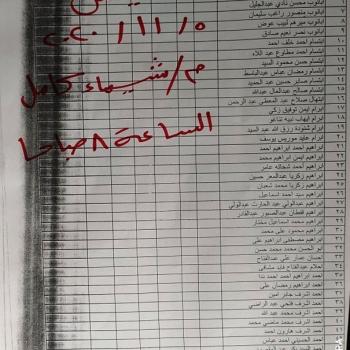 ابانوب محسن نادي عبدالجليل
٧ ابانوب منصور راغب سليمان
٨ ابانوب ميرهم لبيب عوض
٩ ابانوب نصر نعيم صادق
١٠ ابتسام احمد خلف احمد
١١ ابتسام احمد مطاوع عبد اللاه
١٢ ابتسام حسن محمود السيد
١٣ ابتسام رمضان عباس عبدالباسط
١٤ ابتسام صابر حسين عبد الحميد
١٥ ابتسام صالح عبدالعال عبدالله
١٦ ابتهال صلاح عبد المعطي عبد الرحمن
١٧ ابرام ايمن توفيق زكي
١٨ ابرام ايهاب نبيه تناغو
١٩ ابرام شنودة رزق الله عبد السيد
٢٠ ابرام عايد موريس يوسف
٢١ ابراهيم احمد ابراهيم احمد
٢٢ ابراهيم ايمن ابراهيم محمد
٢٣ ابراهيم احمد شحاته عامر
٢٤ ابراهيم زكريا عبدالمعز حسين
٢٥ ابراهيم زكريا محمد شعبان
٢٦ ابراهيم سيد احمد اسماعيل
٢٧ ابراهيم عبدالولي عبد الحارث عبدالولي
٢٨ ابراهيم قطقان عبدالصبور عبدالقادر
٢٩ ابراهيم محمد اسماعيل مختار
٣٠ ابراهيم محمود على محمد
٣١ ابراهيم مصطفى ابراهيم على
٣٢ ابو الحسن محمد محمد حسن
٣٣ احسان عمار على عبدالفتاح
٣٤ احلام عبدالفتاح فايد مشالى
٣٥ احمد ابراهيم احمد ندا
٣٦ احمد ابراهيم رمضان على
٣٧ احمد اشرف جابر امين
٣٨ احمد اشرف فتحي عبد الراضي
٣٩ احمد اشرف محمد عبد الله
٤٠ احمد اشرف محمد منصبى محمد
٤١ احمد اشرف هارون احمد
احمد الحسيني احمد عباس
٢٠٢٠/١١/٥
م/ شيماء كامل
الساعة ٨ صباحا